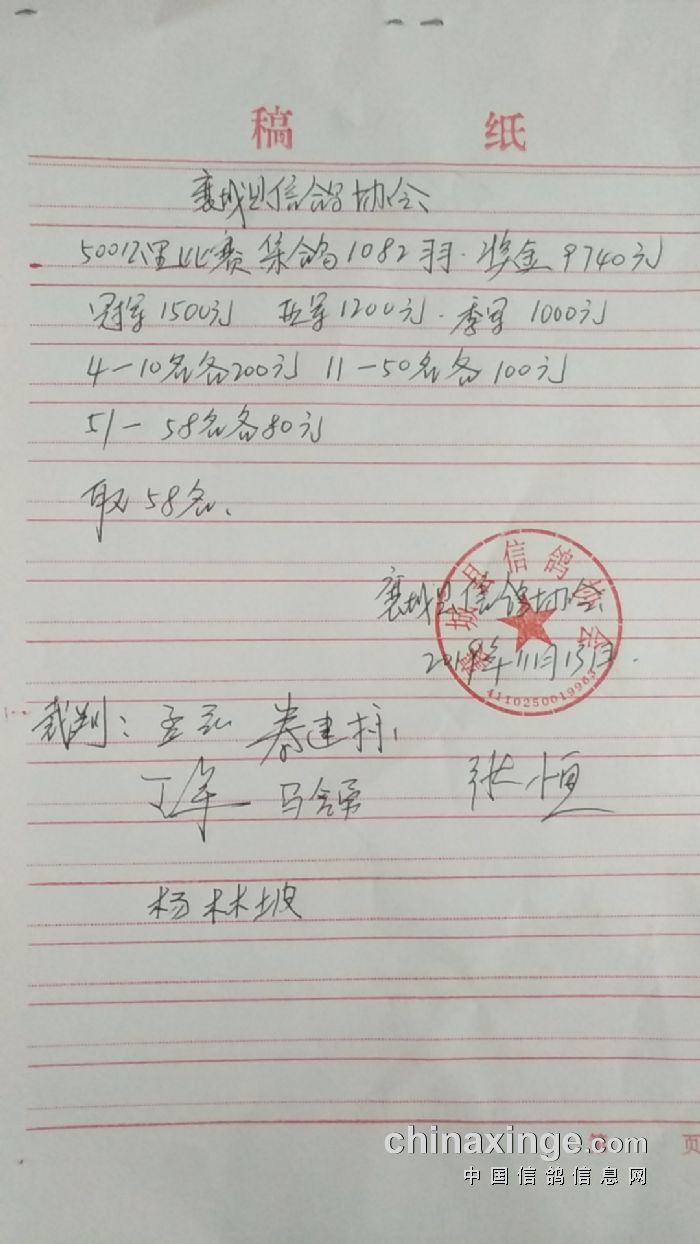 稿 纸
襄城县信鸽协会
500公里比赛集鸽1082羽.奖金9740元
冠军1500元 亚军1200元.季军1000元
4—10名各200元 11—50名各100元
51—58名各80元
取58名、
襄城县信鸽协会
襄城县信鸽协会
4110250019963
裁判:孟
丁军 马 张恒
杨林坡
页
chinaxinge.com
中国信鸽信息网